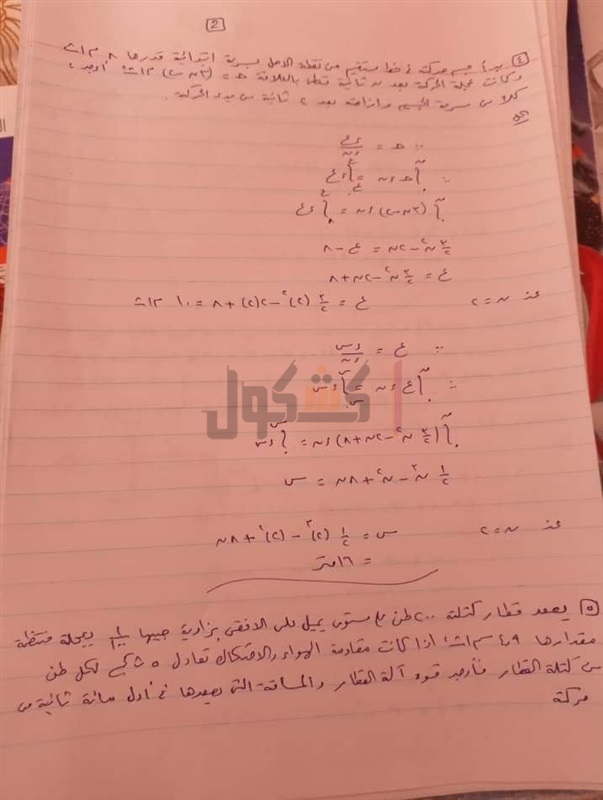 2
٤) يبدأ جسم حركته فى خط مستقيم من نقطة الأصل بسرعة ابتدائية قدرها ٨ م/ث
وكانت عجلة الحركة بعد ن ثانية تعطى بالعلاقة حـ = (٣ن-٢) م/ث٢ أوجد
كلا من سرعة الجسم وازاحته بعد ٢ ثانية من بدء الحركة.
الحل
∵ حـ = ءع/ءن
∴ ∫ حـ ءن = ∫ ءع
∫ (٣ن-٢) ءن = ∫ ءع
٣/٢ ن٢ - ٢ن = ع - ٨
ع = ٣/٢ ن٢ - ٢ن + ٨
عند ن = ٢ ع = ٣/٢ (٢)٢ - ٢(٢) + ٨ = ١٠ م/ث
∵ ع = ءس/ءن
∴ ∫ ع ءن = ∫ ءس
∫ (٣/٢ ن٢ - ٢ن + ٨) ءن = ∫ ءس
١/٢ ن٣ - ن٢ + ٨ن = س
عند ن = ٢ س = ١/٢ (٢)٣ - (٢)٢ + ٨ن
= ١٦ متر
كشكول
٥) يصعد قطار كتلة ٢٠٠ طن على مستوى يميل على الافقى بزاوية جيبها بعجلة منتظمة
مقدارها ٤٫٩ سم/ث٢ اذا كانت مقاومة الهواء والاحتكاك تعادل ٥ ث كجم لكل طن
من كتلة القطار فأوجد قوة آلة القطار والمسافة التى يصعدها فى أول مائة ثانية من
حركته